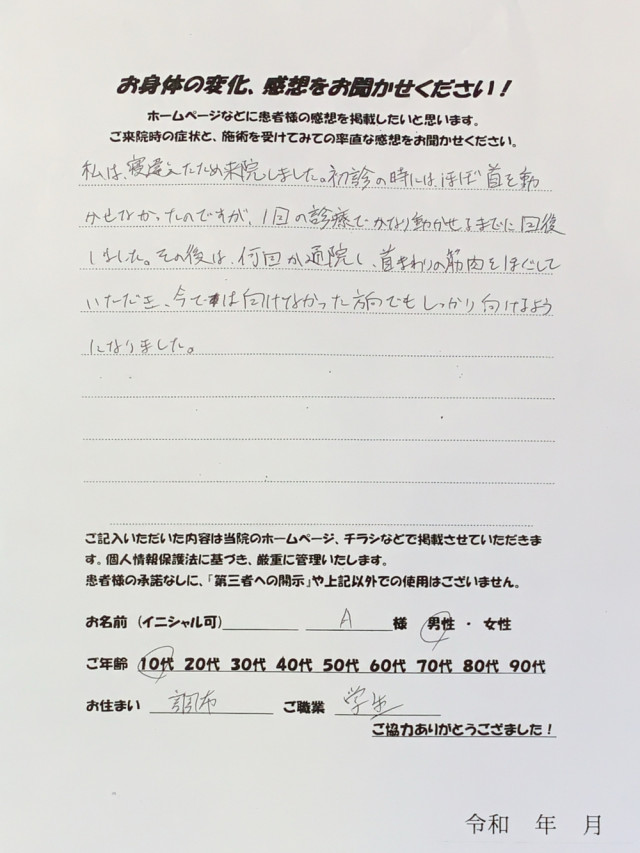 お身体の変化、感想をお聞かせください！
ホームページなどに患者様の感想を掲載したいと思います。
ご来院時の症状と、施術を受けてみての率直な感想をお聞かせください。
私は、寝違えたため来院しました。初診の時には、ほぼ首を動
かせなかったのですが、1回の診療でかなり動かせるまでに回復
しました。その後は、何回か通院し、首まわりの筋肉をほぐして
いただき、今では向けなかった方向でもしっかり向けるよう
になりました。
ご記入いただいた内容は当院のホームページ、チラシなどで掲載させていただきま
す。個人情報保護法に基づき、厳重に管理いたします。
患者様の承諾なしに、「第三者への開示」や上記以外での使用はございません。
お名前（イニシャル可） A 様 男性・女性
ご年齢 10代 20代 30代 40代 50代 60代 70代 80代 90代
お住まい 調布 ご職業 学生
ご協力ありがとうござました！
令和 年 月